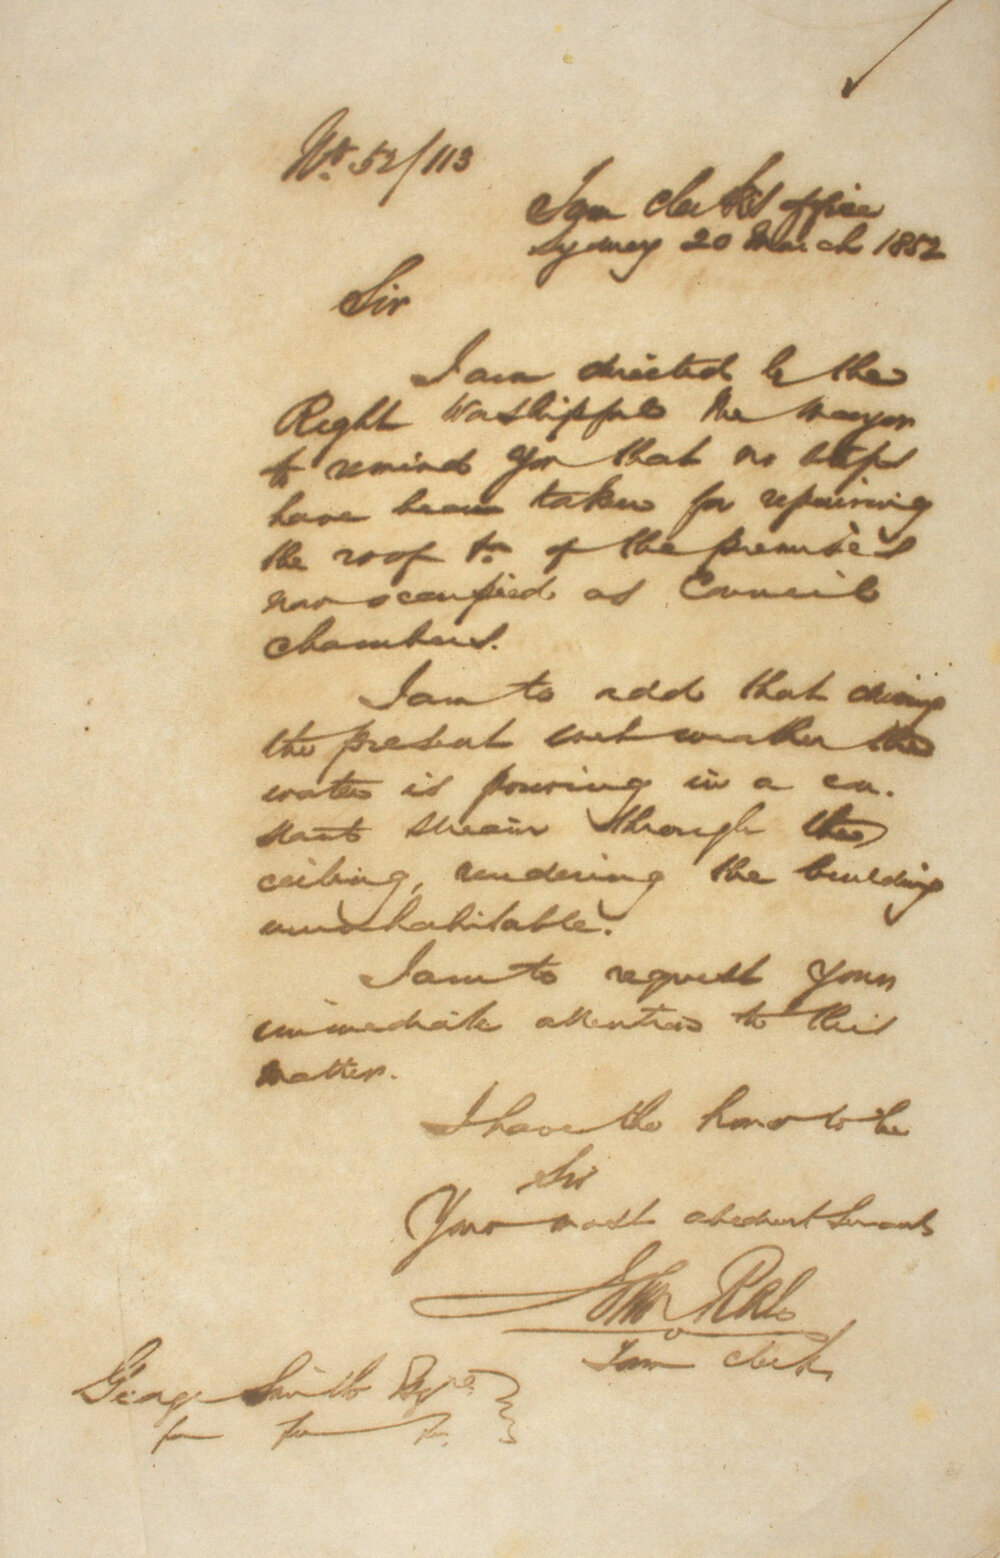 No. 52/113
Town Clerk's Office
Sydney 20 March 1852
Sir
I am directed by the
Right Worshipful the Mayor
to remind you that no steps
have been taken for repairing
the roof &c of the premises
now occupied as Council
Chambers.
I am to add that during
the present wet weather the
water is pouring in a con-
stant stream through the
ceiling, rendering the building
uninhabitable.
I am to request your
immediate attention to this
matter.
I have the honor to be
Sir
Your most obedient Servant
John
Town Clerk
George Smith Esqre